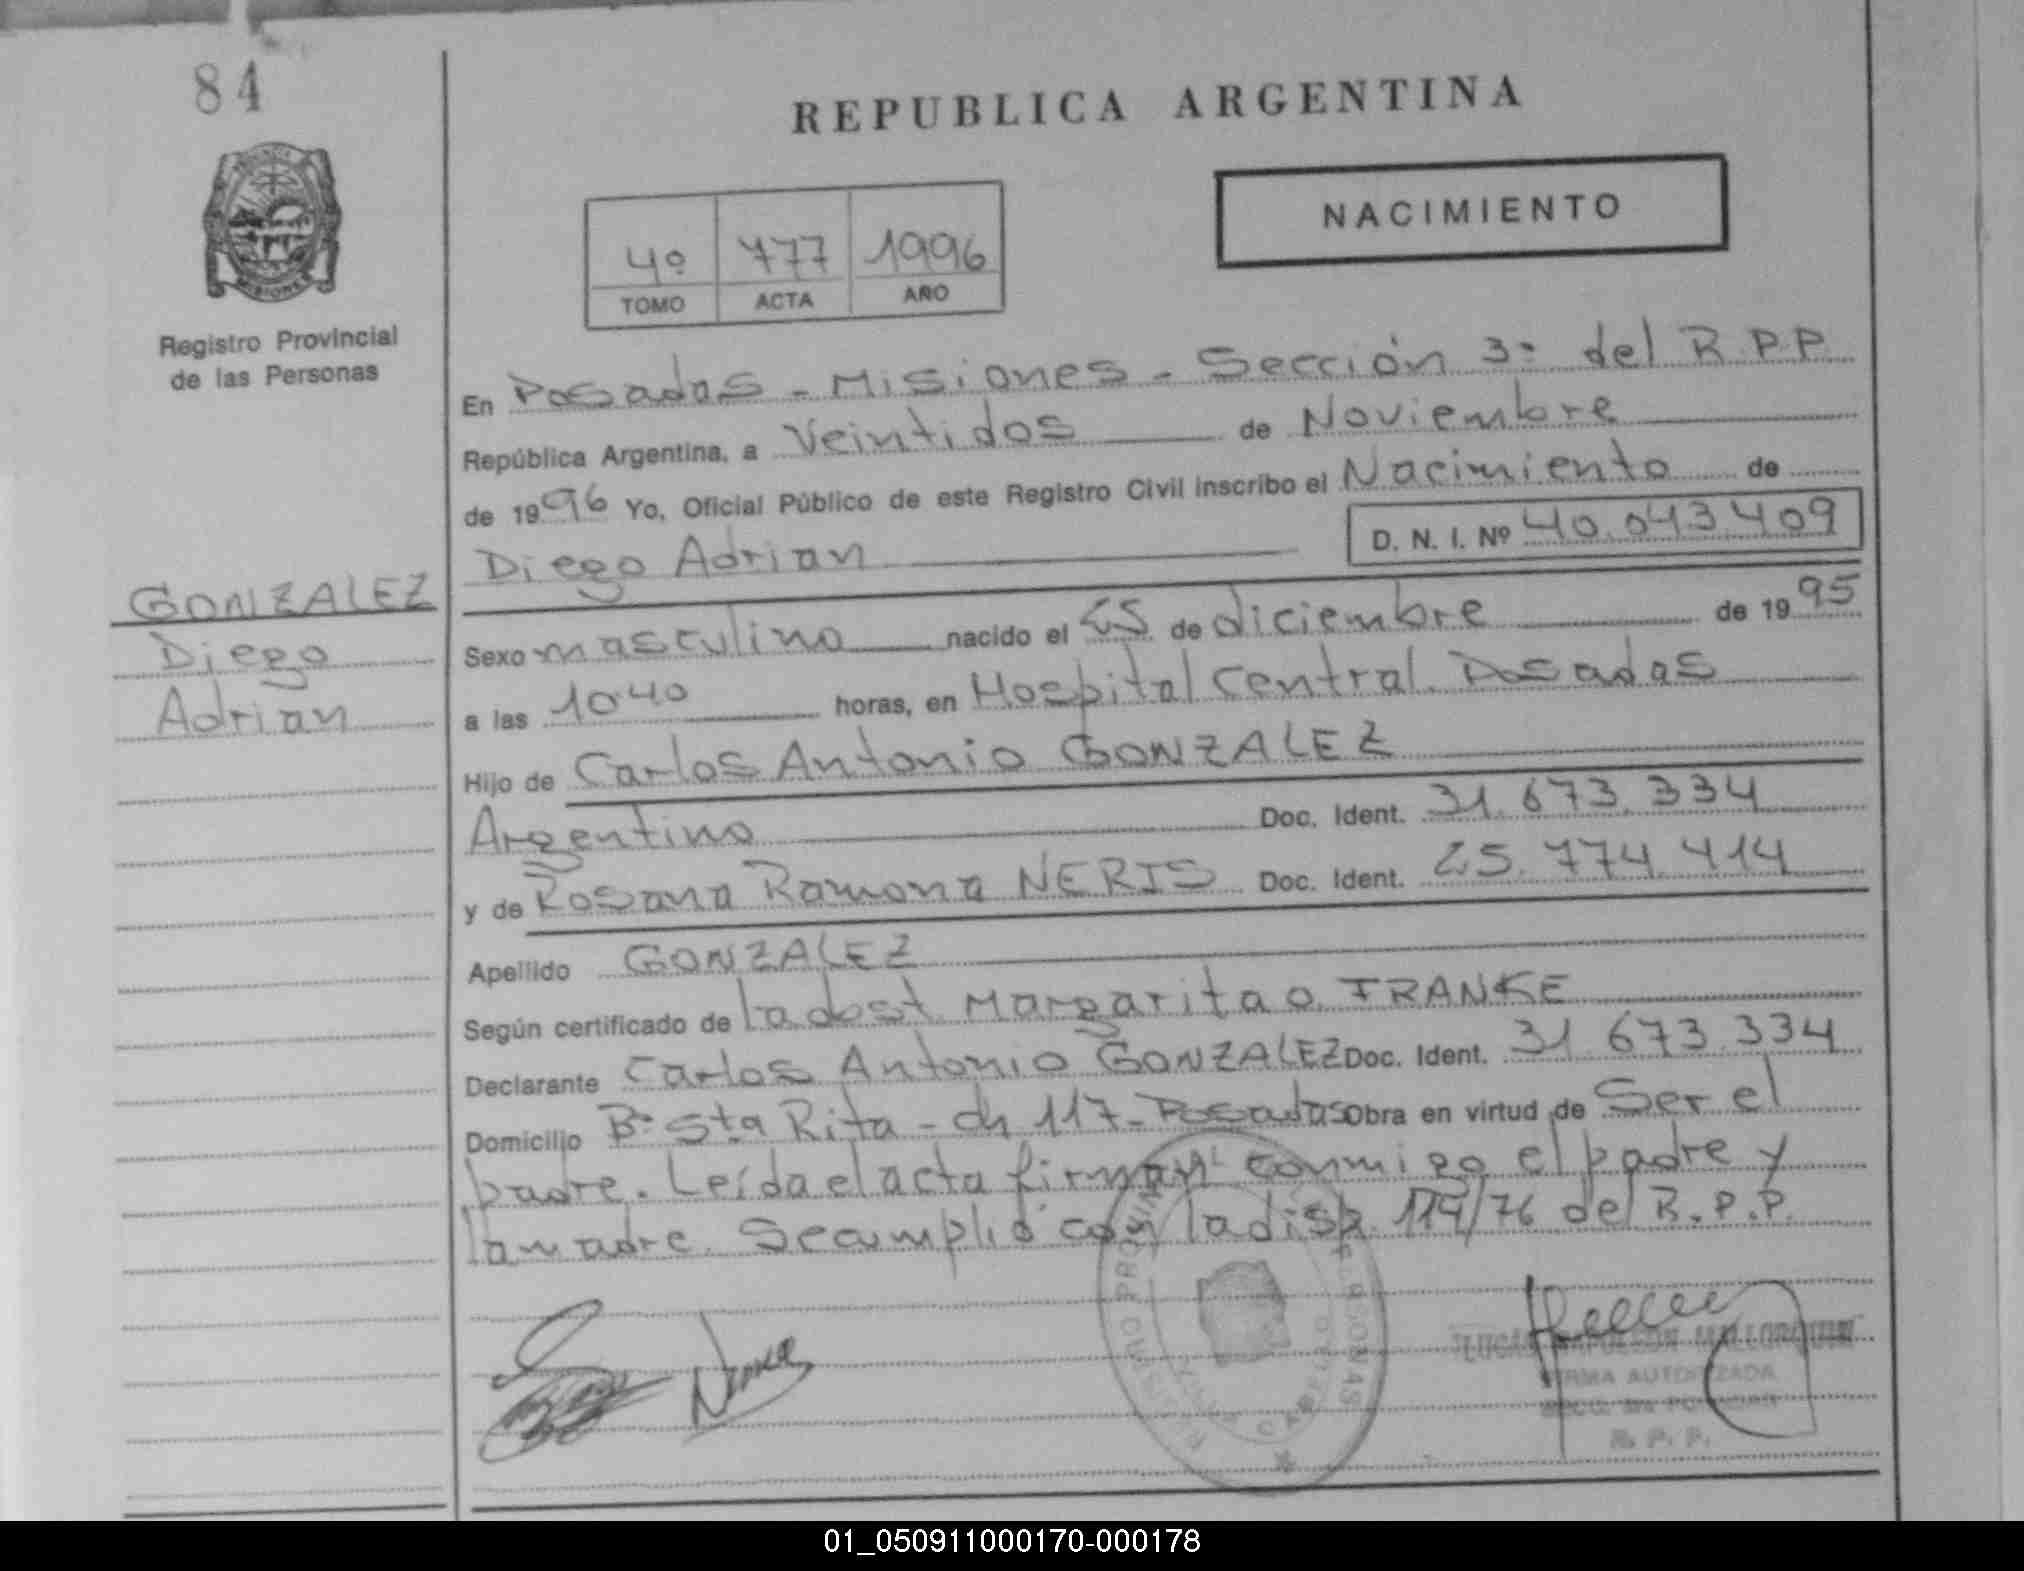 84
REPUBLICA ARGENTINA
NACIMIENTO
4º 777 1996
TOMO ACTA AÑO
PROVINCIA
MISIONES
Registro Provincial
de las Personas
En Posadas - Misiones - Sección 3º del R.P.P.
República Argentina, a Veintidos de Noviembre
de 1996 Yo, Oficial Público de este Registro Civil inscribo el Nacimiento de
Diego Adrian D. N. I. Nº 40.043.409
GONZALEZ
Diego
Adrian
Sexo masculino nacido el 25 de diciembre de 1995
a las 10.40 horas, en Hospital Central. Posadas
Hijo de Carlos Antonio GONZALEZ
Argentino Doc. Ident. 31.673.334
y de Rosana Ramona NERIS Doc. Ident. 25.774.414
Apellido GONZALEZ
Según certificado de la obst. Margarita O. FRANKE
Declarante Carlos Antonio GONZALEZ Doc. Ident. 31.673.334
Domicilio Bº Sta Rita - ch 117 - Posadas Obra en virtud de Ser el
padre. Leída el acta firman conmigo el padre y
la madre. Se cumplió con la disp. 114/76 del R.P.P.
FIRMA AUTORIZADA
R. P. P.
01_050911000170-000178